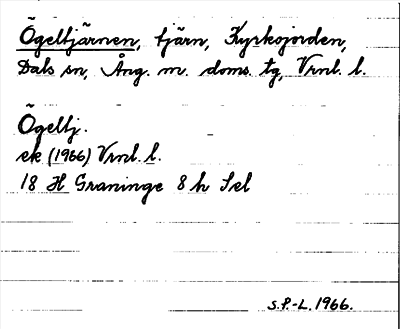 Ögeltjärnen, tjärn, Kyrkojorden,
Dals sn, Ång. m. doms. tg, Vrnl. l.
Ögeltj.
ek (1966) Vrnl. l.
18 H Graninge 8 h Sel
S.P.-L. 1966.